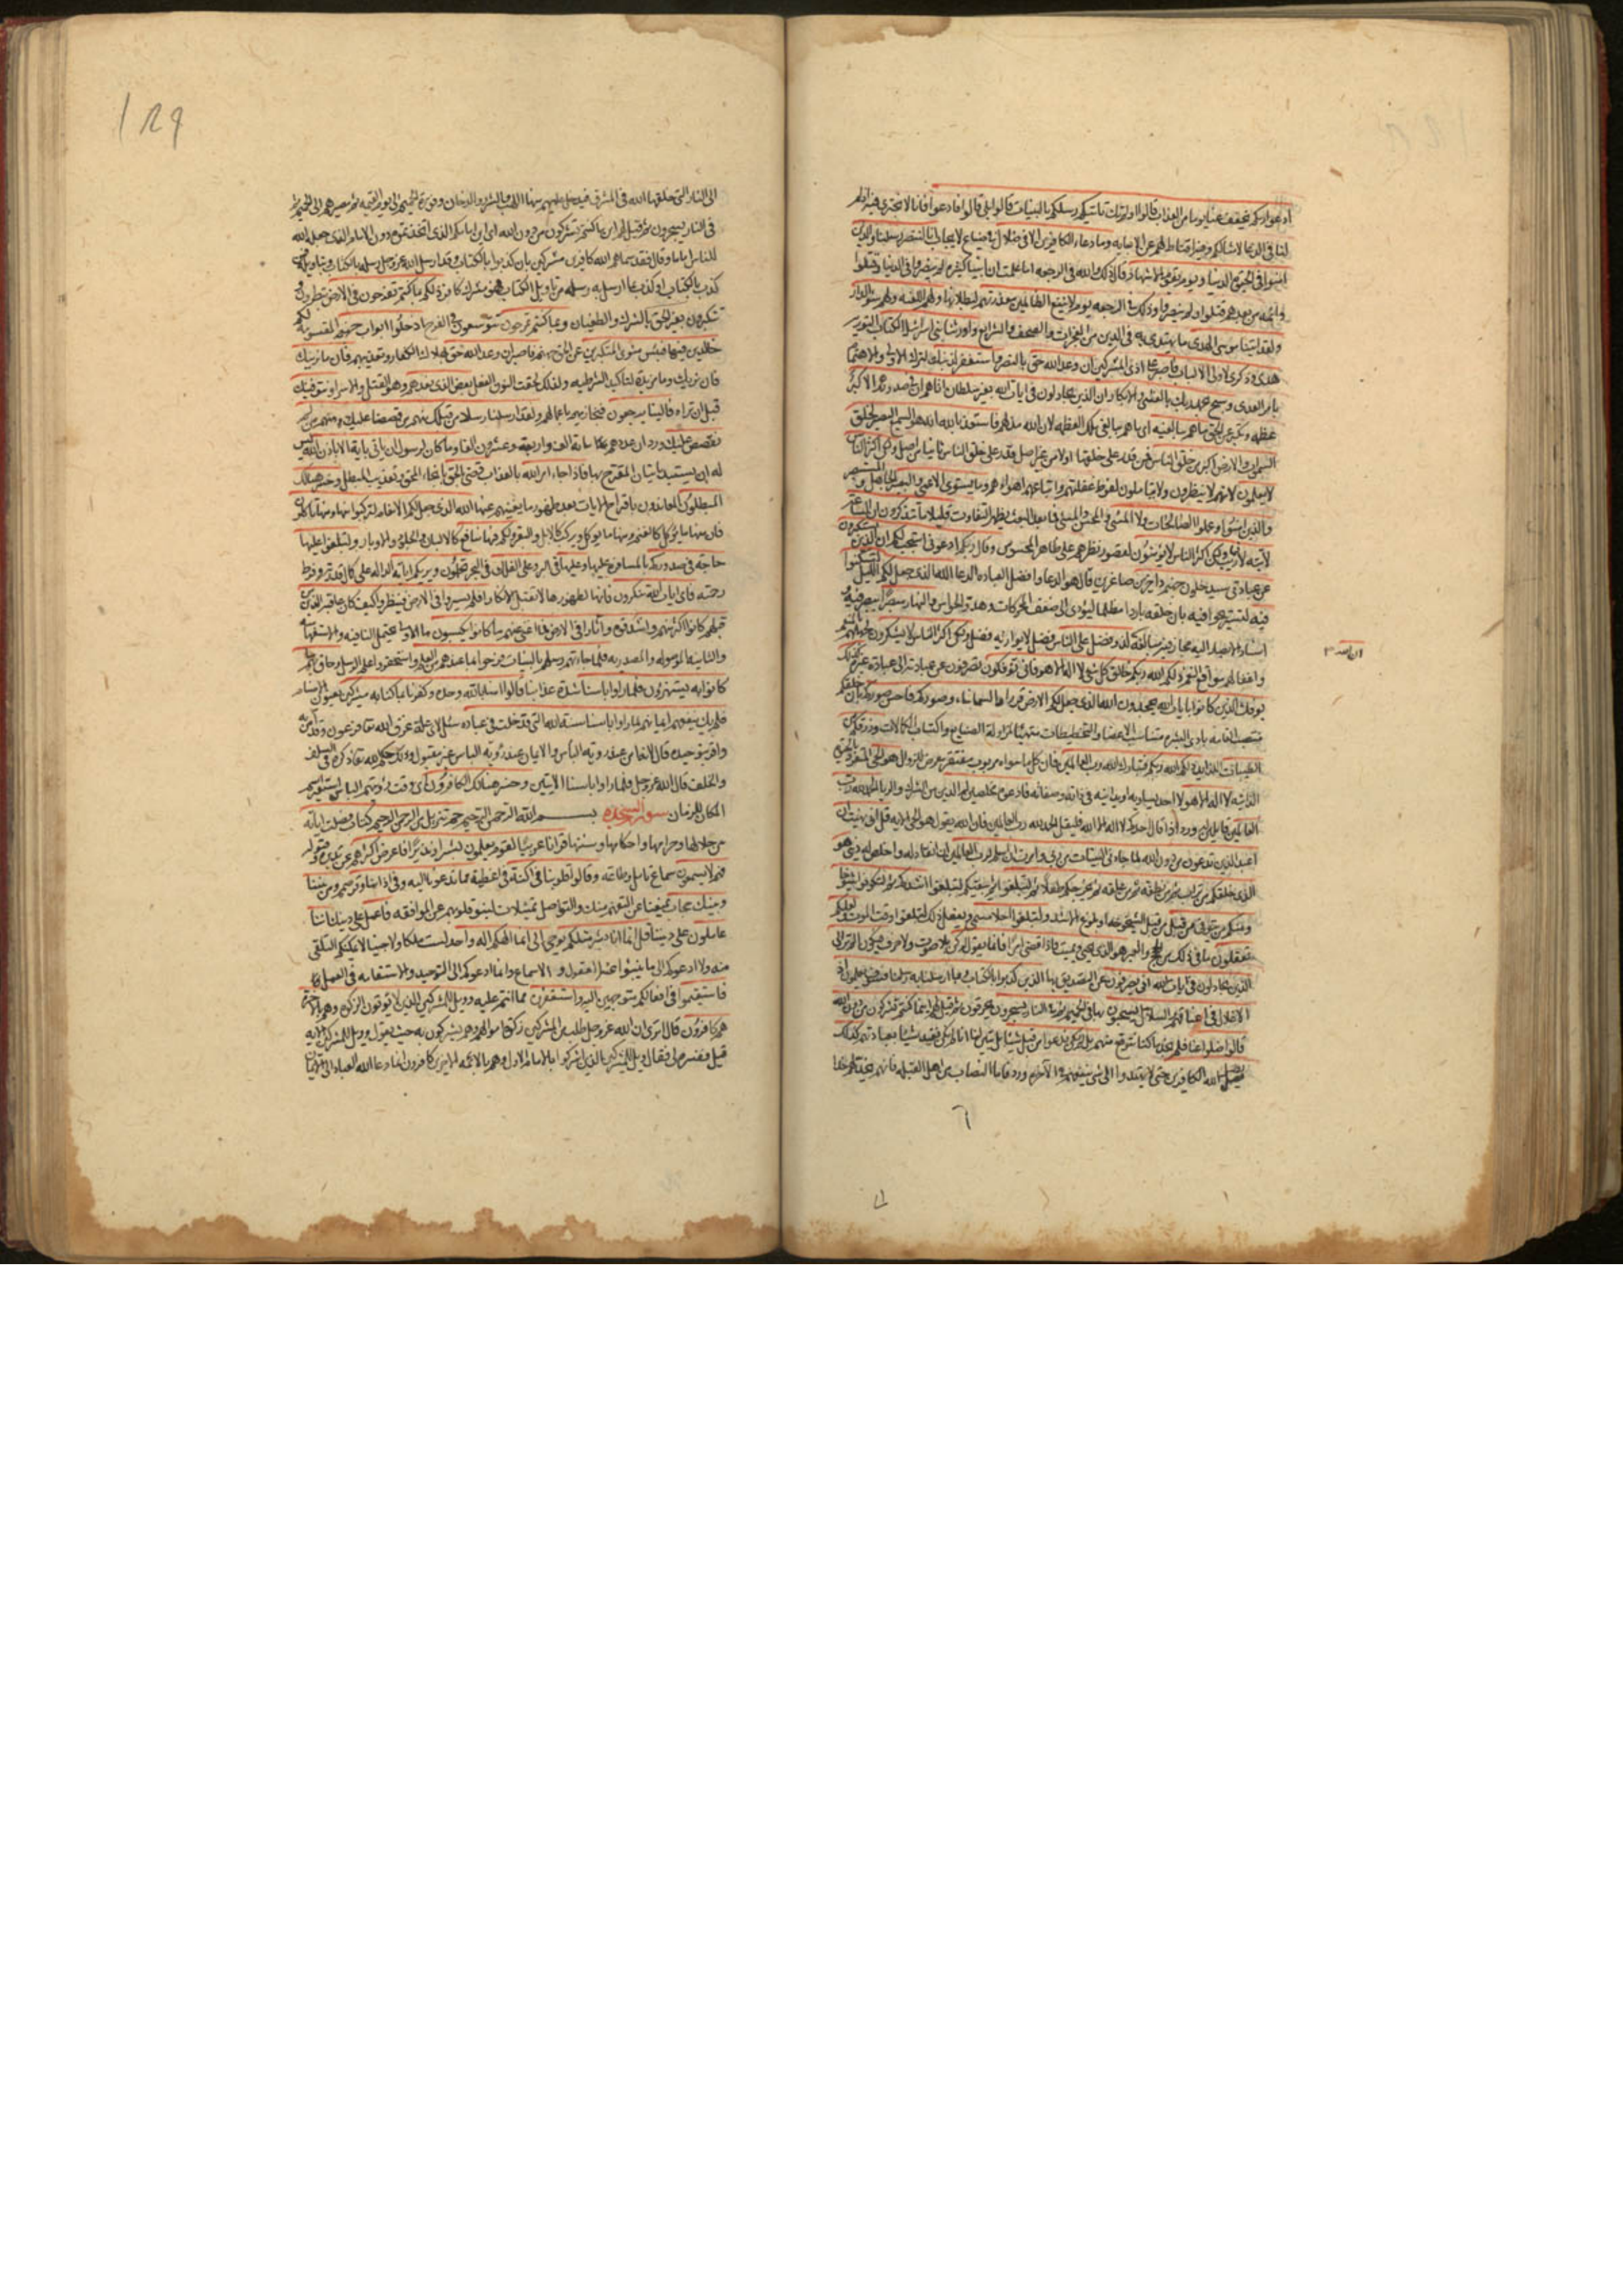 ادعوا ربكم يخفف عنا يوما من العذاب قالوا اولم تك تاتيكم رسلكم بالبينات قالوا بلى قالوا فادعوا فانا لا نجترئ فيه اذ لم
لنا في الدعاء لامثالكم وفيه اقناط لهم عن الاجابه وما دعاء الكافرين الا في ضلال في ضياع لا يجاب انا لننصر رسلنا والذين
امنوا في الحيوة الدنيا ويوم يقوم الاشهاد قال ذلك والله في الرجعه اما علمت ان انبياء كثيره لم ينصروا في الدنيا وقتلوا
وائمه من بعدهم قتلوا ولم ينصروا وذلك في الرجعه يوم لا ينفع الظالمين معذرتهم لبطلانها ولهم اللعنه ولهم سوء الدار
ولقد اتينا موسى الهدى ما يهتدى به في الدين من المعجزات والصحف والشرايع واورثنا بني اسرائيل الكتاب التورية
هدى وذكرى لاولي الالباب فاصبر على اذى المشركين ان وعد الله حق بالنصر واستغفر لذنبك لترك الاولى والاهتمام
بامر العدى وسبح بحمد ربك بالعشي والابكار ان الذين يجادلون في ايات الله بغير سلطان اتاهم ان في صدورهم الا كبر
عظمه وتكبر عن الحق ما هم ببالغيه اي ما هم ببالغي تلك العظمه لان الله مذلهم فاستعذ بالله انه هو السميع البصير لخلق
السموات والارض اكبر من خلق الناس فمن قدر على خلقها اولا من غير اصل قدر على خلق الناس ثانيا من اصل ولكن اكثر الناس
لا يعلمون لانهم لا ينظرون ولا يتاملون لفرط غفلتهم واتباعهم اهواءهم وما يستوي الاعمى والبصير الجاهل والمستبصر
والذين امنوا وعملوا الصالحات ولا المسئ والمحسن والمسئ فيما بعد البعث يظهر التفاوت قليلا ما تتذكرون ان الساعة
لاتيه لا ريب فيها ولكن اكثر الناس لا يؤمنون لقصور نظرهم على ظاهر المحسوس وقال ربكم ادعوني استجب لكم ان الذين يستكبرون
عن عبادتي سيدخلون جهنم داخرين صاغرين قال هو الدعاء وافضل العباده الدعاء الله الذي جعل لكم الليل لتسكنوا
فيه لتستريحوا فيه بان خلقه باردا مظلما ليؤدي الى ضعف الحركات وهدو الحواس والنهار مبصرا يبصر فيه او به
اسناد الابصار اليه مجاز فيه مبالغة لذو فضل على الناس فضل لا يوازيه فضل ولكن اكثر الناس لا يشكرون لجهلهم بالمنعم
واغفالهم مواقع النعم ذلكم الله ربكم خالق كل شئ لا اله الا هو فانى تؤفكون تصرفون عن عبادته الى عبادة غيره كذلك
يؤفك الذين كانوا بايات الله يجحدون الله الذي جعل لكم الارض قرارا والسماء بناء وصوركم فاحسن صوركم بان خلقكم
منتصب القامه بادي البشره متناسب الاعضاء والتخطيطات متهيئا لمزاولة الصنايع واكتساب الكمالات ورزقكم من
الطيبات اللذايذ ذلكم الله ربكم فتبارك الله رب العالمين فان كل ما سواه مربوب مفتقر معرض للزوال هو الحي المتفرد بالحيوة
الذاتيه لا اله الا هو لا احد يساويه او يدانيه في ذاته وصفاته فادعوه مخلصين له الدين من الشرك والريا الحمد لله رب
العالمين قائلين له ورد اذا قال احدكم لا اله الا الله فليقل الحمد لله رب العالمين فان الله يقول هو الحي الايه قل اني نهيت ان
اعبد الذين تدعون من دون الله لما جاءني البينات من ربي وامرت ان اسلم لرب العالمين ان انقاد له واخلص له ديني هو
الذي خلقكم من تراب ثم من نطفه ثم من علقه ثم يخرجكم طفلا ثم لتبلغوا ثم يبقيكم لتبلغوا اشدكم ثم لتكونوا شيوخا
ومنكم من يتوفى من قبل من قبل الشيخوخه او بلوغ الاشد ولتبلغوا اجلا مسمى ويفعل ذلك لتبلغوا وقت الموت ولعلكم
تعقلون ما في ذلك من الحجج والعبر هو الذي يحيي ويميت فاذا قضى امرا فانما يقول له كن بلا صوت ولا حرف فيكون الم تر الى
الذين يجادلون في ايات الله انى يصرفون عن التصديق بها الذين كذبوا بالكتاب وبما ارسلنا به رسلنا فسوف يعلمون اذ
الاغلال في اعناقهم والسلاسل يسحبون بها في الحميم ثم في النار يسجرون يحرقون ثم قيل لهم اينما كنتم تشركون من دون الله
قالوا ضلوا عنا فلم نجد ما كنا نتوقع منهم بل لم نكن ندعوا من قبل شيئا بل تبين لنا انا لم نكن نعبد شيئا بعبادتهم كذلك
يضل الله الكافرين حتى لا يهتدوا الى شئ ينفعهم في الاخره ورد فاما النصاب من اهل القبله فانهم يخد لهم خدا
الى النار التي خلقها الله في المشرق فيدخل عليهم منها اللهب والشرر والدخان وفورة الحميم الى يوم القيمه ثم مصيرهم الى الحميم ثم
في النار يسجرون ثم قيل لهم اين ما كنتم تشركون من دون الله اي اين امامكم الذي اتخذتموه دون الامام الذي جعله الله
للناس اماما وقال فقد سماهم الله كافرين مشركين بان كذبوا بالكتاب وقد ارسل الله عز وجل رسله بالكتاب وبتاويله فمن
كذب بالكتاب او كذب بما ارسل به رسله من تاويل الكتاب فهو مشرك كافر ذلكم بما كنتم تفرحون في الارض تبطرون و
تتكبرون بغير الحق بالشرك والطغيان وبما كنتم تمرحون تتوسعون في الفرح ادخلوا ابواب جهنم المقسومه لكم
خالدين فيها فبئس مثوى المتكبرين عن الحق جهنم فاصبر ان وعد الله حق بهلاك الكفار وتعذيبهم فاما نرينك
فان نرينك وما مزيدة لتاكيد الشرطيه ولذلك لحقت النون الفعل بعض الذي نعدهم وهو القتل والاسر او نتوفينك
قبل ان تراه فالينا يرجعون فنجازيهم باعمالهم ولقد ارسلنا رسلا من قبلك منهم من قصصنا عليك ومنهم من لم
نقصص عليك ورد ان عددهم مائة الف واربعه وعشرون الفا وما كان لرسول ان ياتي باية الا باذن الله ليس
له ان يستبد باتيان المقترح بها فاذا جاء امر الله بالعذاب قضي بالحق بانجاء المحق وتعذيب المبطل وخسر هنالك
المبطلون المعاندون باقتراح الايات بعد ظهور ما يغنيهم عنها الله الذي جعل لكم الانعام لتركبوا منها ومنها تاكلون
فان منها ما يؤكل كالغنم ومنها ما يؤكل ويركب كالابل والبقر ولكم فيها منافع كالالبان والجلود والاوبار ولتبلغوا عليها
حاجة في صدوركم بالمسافرة عليها وعليها في البر وعلى الفلك في البحر تحملون ويريكم اياته الداله على كمال قدرته وفرط
رحمته فاي ايات الله تنكرون فانها لظهورها لا تقبل الانكار افلم يسيروا في الارض فينظروا كيف كان عاقبة الذين من
قبلهم كانوا اكثر منهم واشد قوة واثارا في الارض فما اغنى عنهم ما كانوا يكسبون ما الاولى تحتمل النافيه والاستفهاميه
والثانيه الموصوله والمصدريه فلما جاءتهم رسلهم بالبينات فرحوا بما عندهم من العلم واستحقروا علم الرسل وحاق بهم ما
كانوا به يستهزؤن فلما راوا باسنا شدة عذابنا قالوا امنا بالله وحده وكفرنا بما كنا به مشركين يعنون الاصنام
فلم يك ينفعهم ايمانهم لما راوا باسنا سنة الله التي قد خلت في عباده سئل لاي علة غرق الله تعالى فرعون وقد امن به
واقر بتوحيده قال لانه امن عند روية الباس والايمان عند روية الباس غير مقبول وذلك حكم الله تعالى ذكره في السلف
والخلف قال الله عز وجل فلما راوا باسنا الايتين وخسر هنالك الكافرون اي وقت رؤيتهم الباس استعير اسم
المكان للزمان سورة السجده بسم الله الرحمن الرحيم حم تنزيل من الرحمن الرحيم كتاب فصلت اياته
من حلالها وحرامها واحكامها وسننها قرانا عربيا لقوم يعلمون بشيرا ونذيرا فاعرض اكثرهم عن تدبره وقبوله
فهم لا يسمعون سماع تامل وطاعه وقالوا قلوبنا في اكنة في اغطية مما تدعونا اليه وفي اذاننا وقر صمم ومن بيننا
وبينك حجاب يمنعنا عن التفهم منك والتواصل تمثيلات لنبو قلوبهم عن الموافقه فاعمل على دينك اننا
عاملون على ديننا قل انما انا بشر مثلكم يوحى الي انما الهكم اله واحد لست ملكا ولا جنيا لا يمكنكم التلقي
منه ولا ادعوكم الى ما ينبوا عنه العقول والاسماع وانما ادعوكم الى التوحيد والاستقامه في العمل
فاستقيموا في افعالكم متوجهين اليه واستغفروه مما انتم عليه وويل للمشركين الذين لا يؤتون الزكوة وهم بالاخرة
هم كافرون قال اترى ان الله عز وجل طلب من المشركين زكوة اموالهم وهم يشركون به حيث يقول وويل للمشركين الايه
قيل فسره لي فقال ويل للمشركين الذين اشركوا بالامام الاول وهم بالائمه الاخرين كافرون انما دعا الله العباد الى الايمان